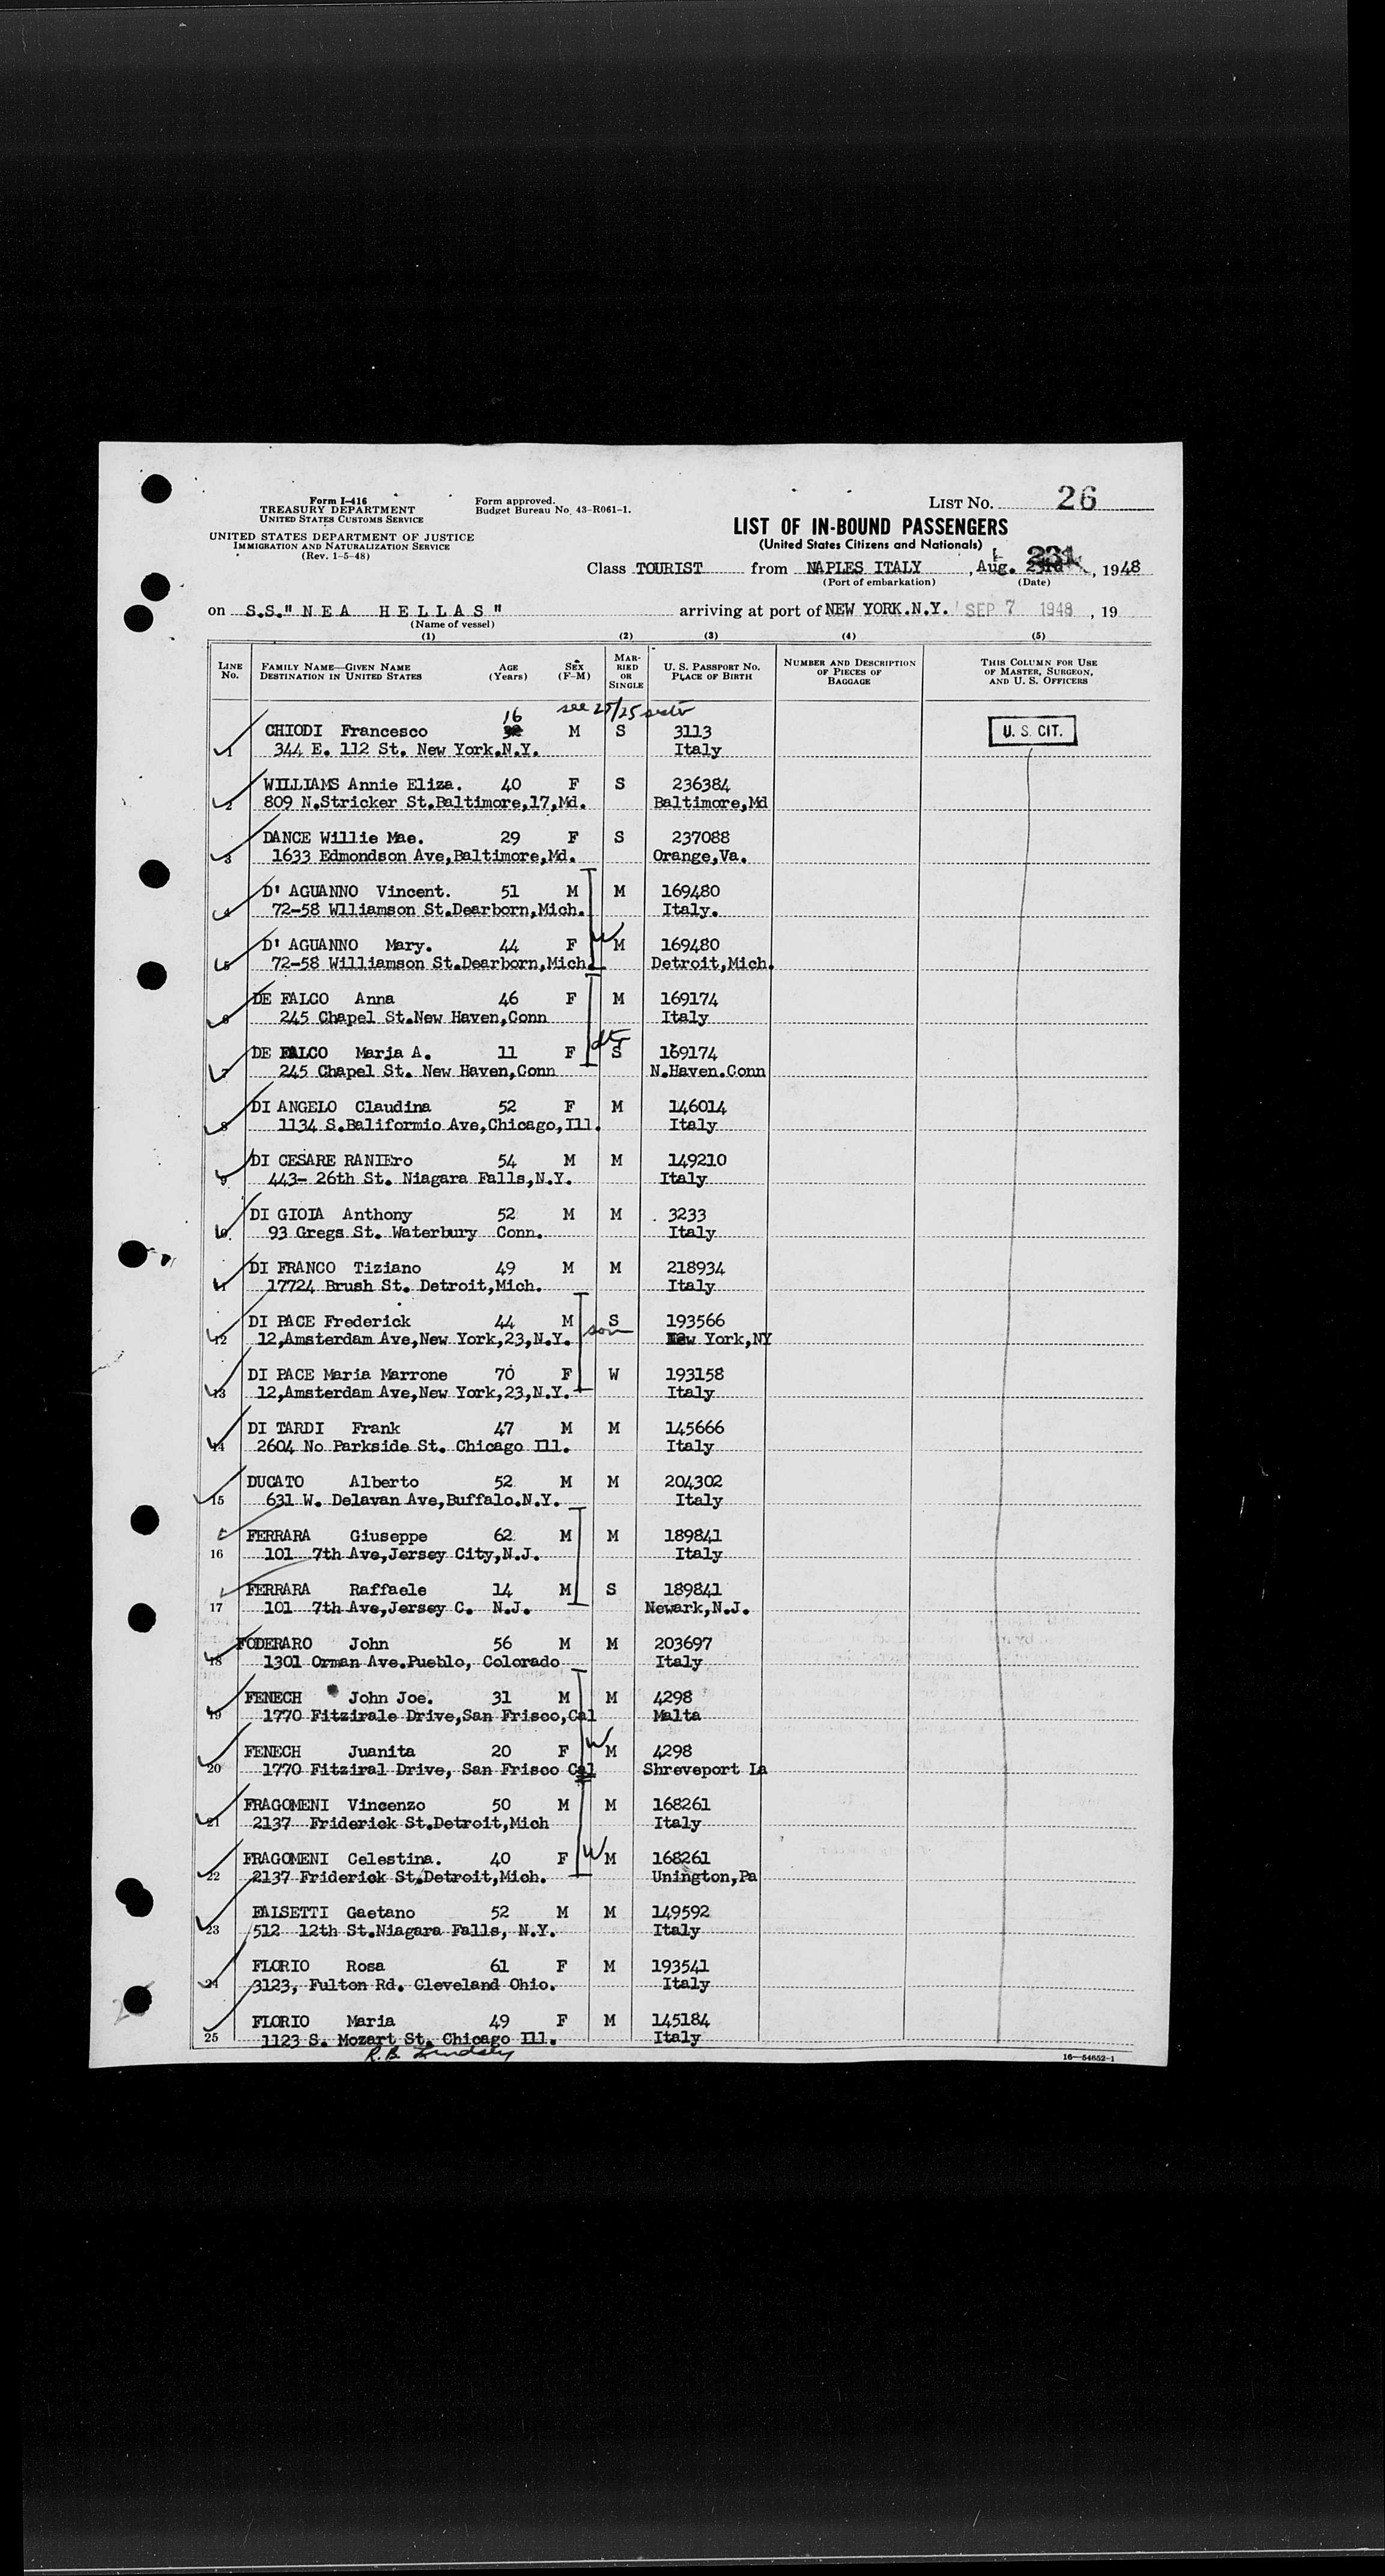 Form I-416
TREASURY DEPARTMENT
UNITED STATES CUSTOMS SERVICE
UNITED STATES DEPARTMENT OF JUSTICE
IMMIGRATION AND NATURALIZATION SERVICE
(Rev. 1-5-48)
Form approved.
Budget Bureau No. 43-R061-1.
LIST No. 26
LIST OF IN-BOUND PASSENGERS
(United States Citizens and Nationals)
Class TOURIST from NAPLES ITALY, Aug. , 1948
(Port of embarkation) (Date)
on S.S." N E A H E L L A S " arriving at port of NEW YORK.N.Y. SEP 7 1948, 19
(Name of vessel)
(1) (2) (3) (4) (5)
LINE No. FAMILY NAME—GIVEN NAME DESTINATION IN UNITED STATES AGE (Years) SEX (F-M) MARRIED OR SINGLE U. S. PASSPORT No. PLACE OF BIRTH NUMBER AND DESCRIPTION OF PIECES OF BAGGAGE THIS COLUMN FOR USE OF MASTER, SURGEON, AND U. S. OFFICERS
16 see 25/25
CHIODI Francesco M S 3113 U. S. CIT.
1 344 E. 112 St. New York.N.Y. Italy
WILLIAMS Annie Eliza. 40 F S 236384
2 809 N.Stricker St.Baltimore,17,Md. Baltimore,Md
DANCE Willie Mae. 29 F S 237088
3 1633 Edmondson Ave,Baltimore,Md. Orange,Va.
D' AGUANNO Vincent. 51 M M 169480
4 72-58 Wlliamson St.Dearborn,Mich. Italy.
D' AGUANNO Mary. 44 F W M 169480
5 72-58 Williamson St.Dearborn,Mich. Detroit,Mich.
DE FALCO Anna 46 F M 169174
6 245 Chapel St.New Haven,Conn Italy
DE FALCO Maria A. 11 F dtr S 169174
7 245 Chapel St. New Haven,Conn N.Haven.Conn
DI ANGELO Claudina 52 F M 146014
8 1134 S.Baliformio Ave,Chicago,Ill. Italy
DI CESARE RANIEro 54 M M 149210
9 443- 26th St. Niagara Falls,N.Y. Italy
DI GIOIA Anthony 52 M M 3233
10 93 Gregs St. Waterbury Conn. Italy
DI FRANCO Tiziano 49 M M 218934
11 17724 Brush St. Detroit,Mich. Italy
DI PACE Frederick 44 M son S 193566
12 12,Amsterdam Ave,New York,23,N.Y. New York,NY
DI PACE Maria Marrone 70 F W 193158
13 12,Amsterdam Ave,New York,23,N.Y. Italy
DI TARDI Frank 47 M M 145666
14 2604 No Parkside St. Chicago Ill. Italy
DUCATO Alberto 52 M M 204302
15 631 W. Delavan Ave,Buffalo.N.Y. Italy
FERRARA Giuseppe 62 M M 189841
16 101 7th Ave,Jersey City,N.J. Italy
FERRARA Raffaele 14 M S 189841
17 101 7th Ave,Jersey C. N.J. Newark,N.J.
FODERARO John 56 M M 203697
18 1301 Orman Ave.Pueblo, Colorado Italy
FENECH John Joe. 31 M M 4298
19 1770 Fitzirale Drive,San Frisco,Cal Malta
FENECH Juanita 20 F W M 4298
20 1770 Fitziral Drive, San Frisco Cal Shreveport La
FRAGOMENI Vincenzo 50 M M 168261
21 2137 Friderick St.Detroit,Mich Italy
FRAGOMENI Celestina. 40 F W M 168261
22 2137 Friderick St.Detroit,Mich. Unington,Pa
FALSETTI Gaetano 52 M M 149592
23 512 12th St.Niagara Falls, N.Y. Italy
FLORIO Rosa 61 F M 193541
24 3123, Fulton Rd. Cleveland Ohio. Italy
FLORIO Maria 49 F M 145184
25 1123 S. Mozart St. Chicago Ill. Italy
R.B. Lindsly
16—54652-1